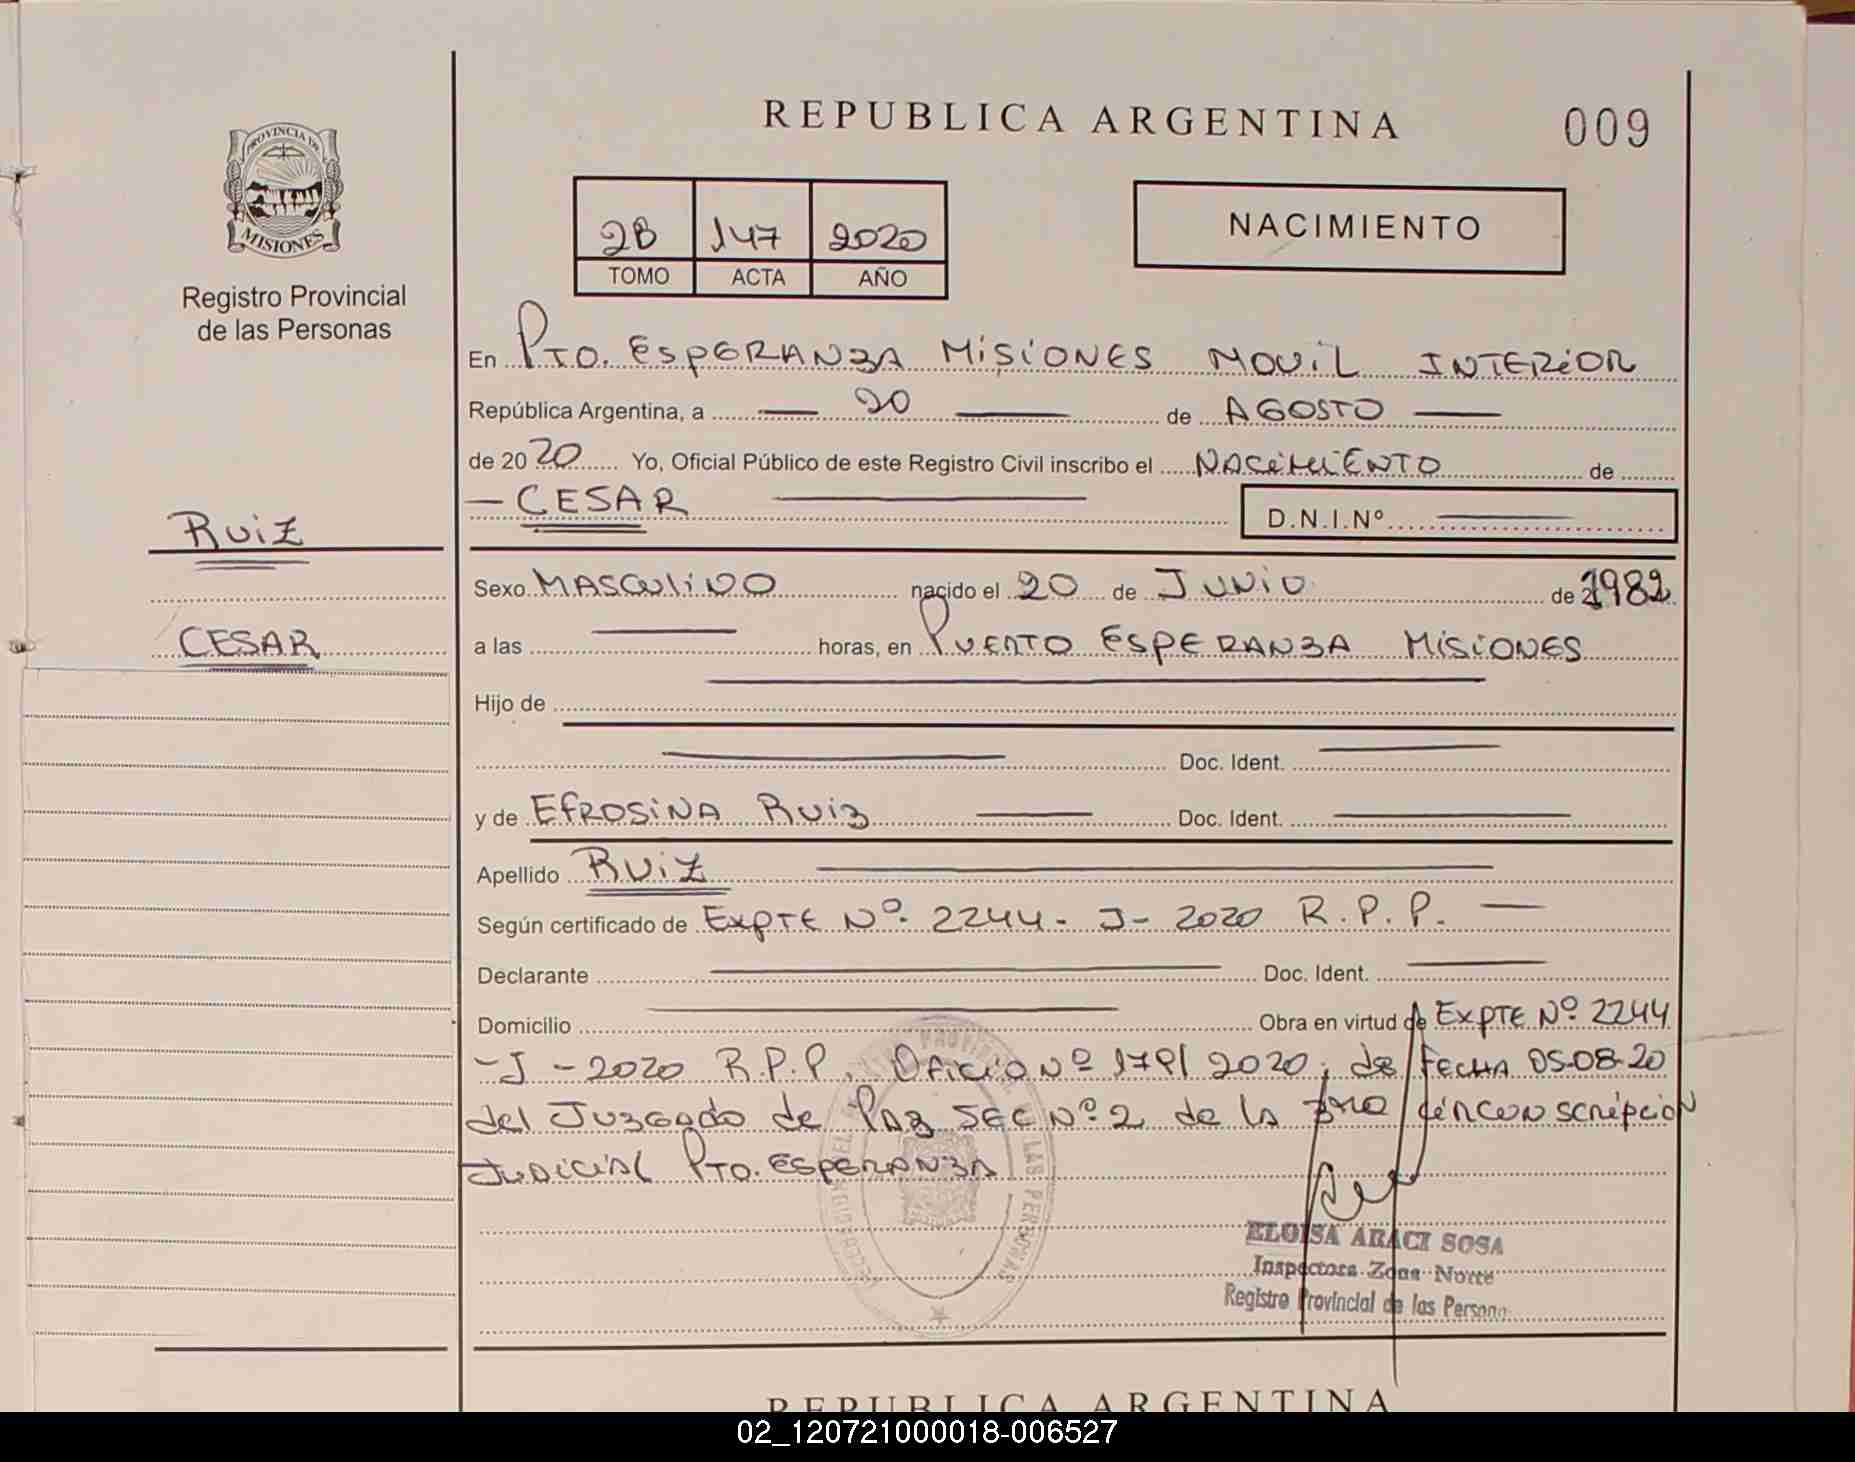 REPUBLICA ARGENTINA
009
PROVINCIA DE
MISIONES
Registro Provincial
de las Personas
2B 147 2020
TOMO ACTA AÑO
NACIMIENTO
En PTO. ESPERANZA MISIONES MOVIL INTERIOR
República Argentina, a 20 de AGOSTO
de 2020 Yo, Oficial Público de este Registro Civil inscribo el NACIMIENTO de
CESAR
D.N.I.Nº
RUIZ
CESAR
Sexo MASCULINO nacido el 20 de JUNIO de 1982
a las horas, en PUERTO ESPERANZA MISIONES
Hijo de
Doc. Ident.
y de EFROSINA RUIZ Doc. Ident.
Apellido RUIZ
Según certificado de EXPTE Nº 2244-J-2020 R.P.P.
Declarante Doc. Ident.
Domicilio Obra en virtud de EXPTE Nº 2244
-J-2020 R.P.P. OFICIO Nº 179/2020, de FECHA 05-08-20
del JUZGADO de PAZ SEC Nº 2 de la 3ra CIRCUNSCRIPCION
JUDICIAL PTO. ESPERANZA
ELOISA ARACI SOSA
Inspectora Zona Norte
Registro Provincial de las Persona
REPUBLICA ARGENTINA
02_120721000018-006527